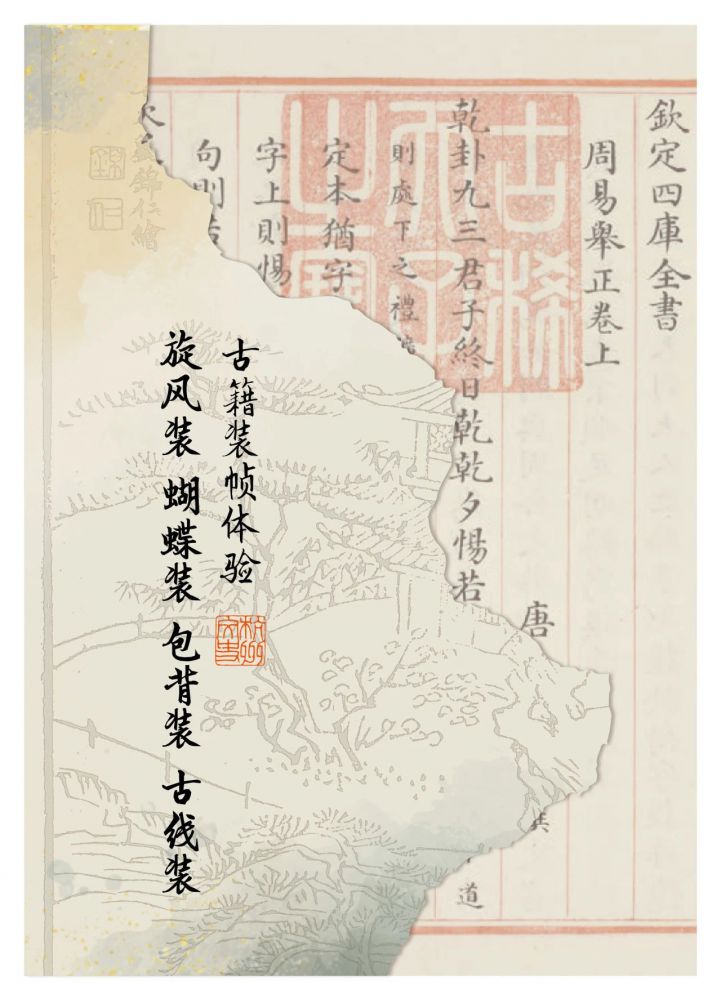 欽定四庫全書
周易舉正卷上
唐
乾卦九三君子終日乾乾夕惕若
道
則處下之禮
定本猶字
字上則惕
句則
古稀天子之寶
古籍装帧体验
旋风装 蝴蝶装 包背装 古线装
杭州文史
錦仁繪